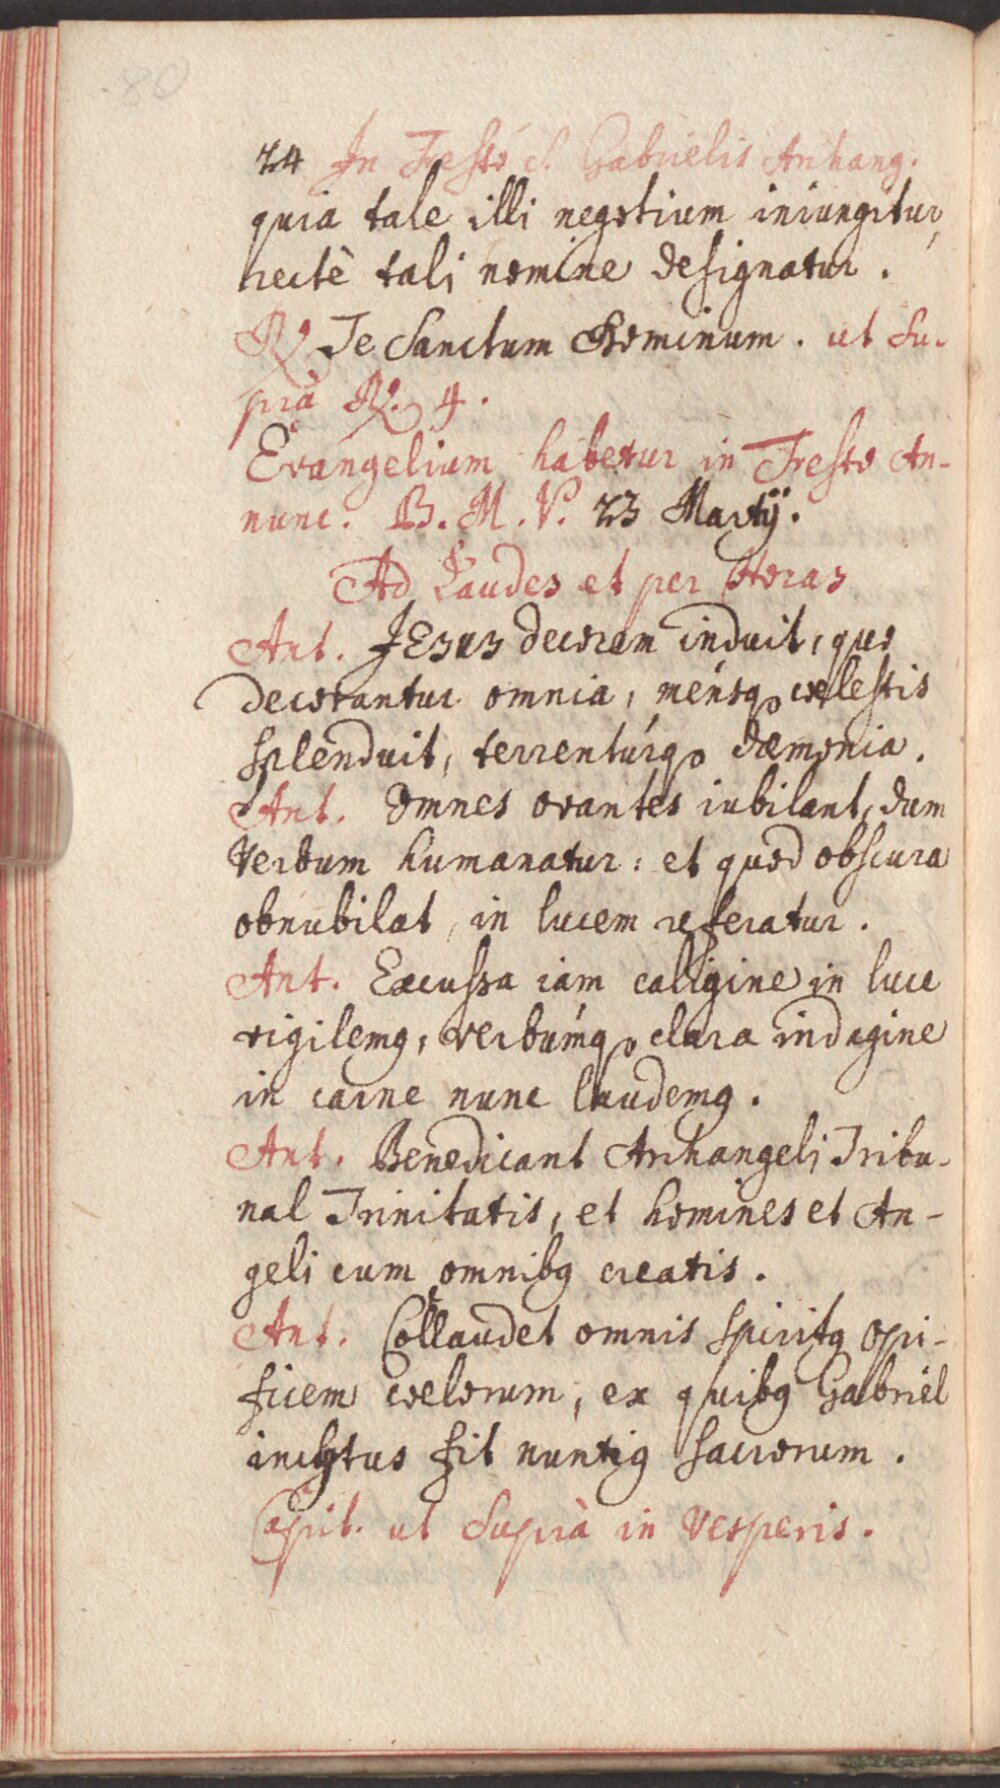 80
24 In Festo S. Gabrielis Archang.
quia tale illi negotium iniungitur,
rectè tali nomine designatur.
℟ Te Sanctum Dominum. ut su-
prà ℟. 4.
Evangelium habetur in Festo An-
nunc. B. M. V. 25 Martÿ.
Ad Laudes et per Horas
Ant. JEsus decorem induit, quo
decorantur omnia, ménsq₃ cœlestis
splenduit, terrentúrq₃ dæmonia.
Ant. Omnes orantes iubilant, dum
Verbum humanatur: et quod obscura
obnubilat, in lucem referatur.
Ant. Excussa iam caligine in luce
vigilemꝰ, verbúmq₃ clara indagine
in carne nunc laudemꝰ.
Ant. Benedicant Archangeli Tribu-
nal Trinitatis, et homines et An-
geli cum omnibꝰ creatis.
Ant. Collaudet omnis spiritꝰ opi-
ficem cœlorum, ex quibꝰ Gabriel
inclytus fit nuntiꝰ sacrorum.
Capit. ut Suprà in Vesperis.